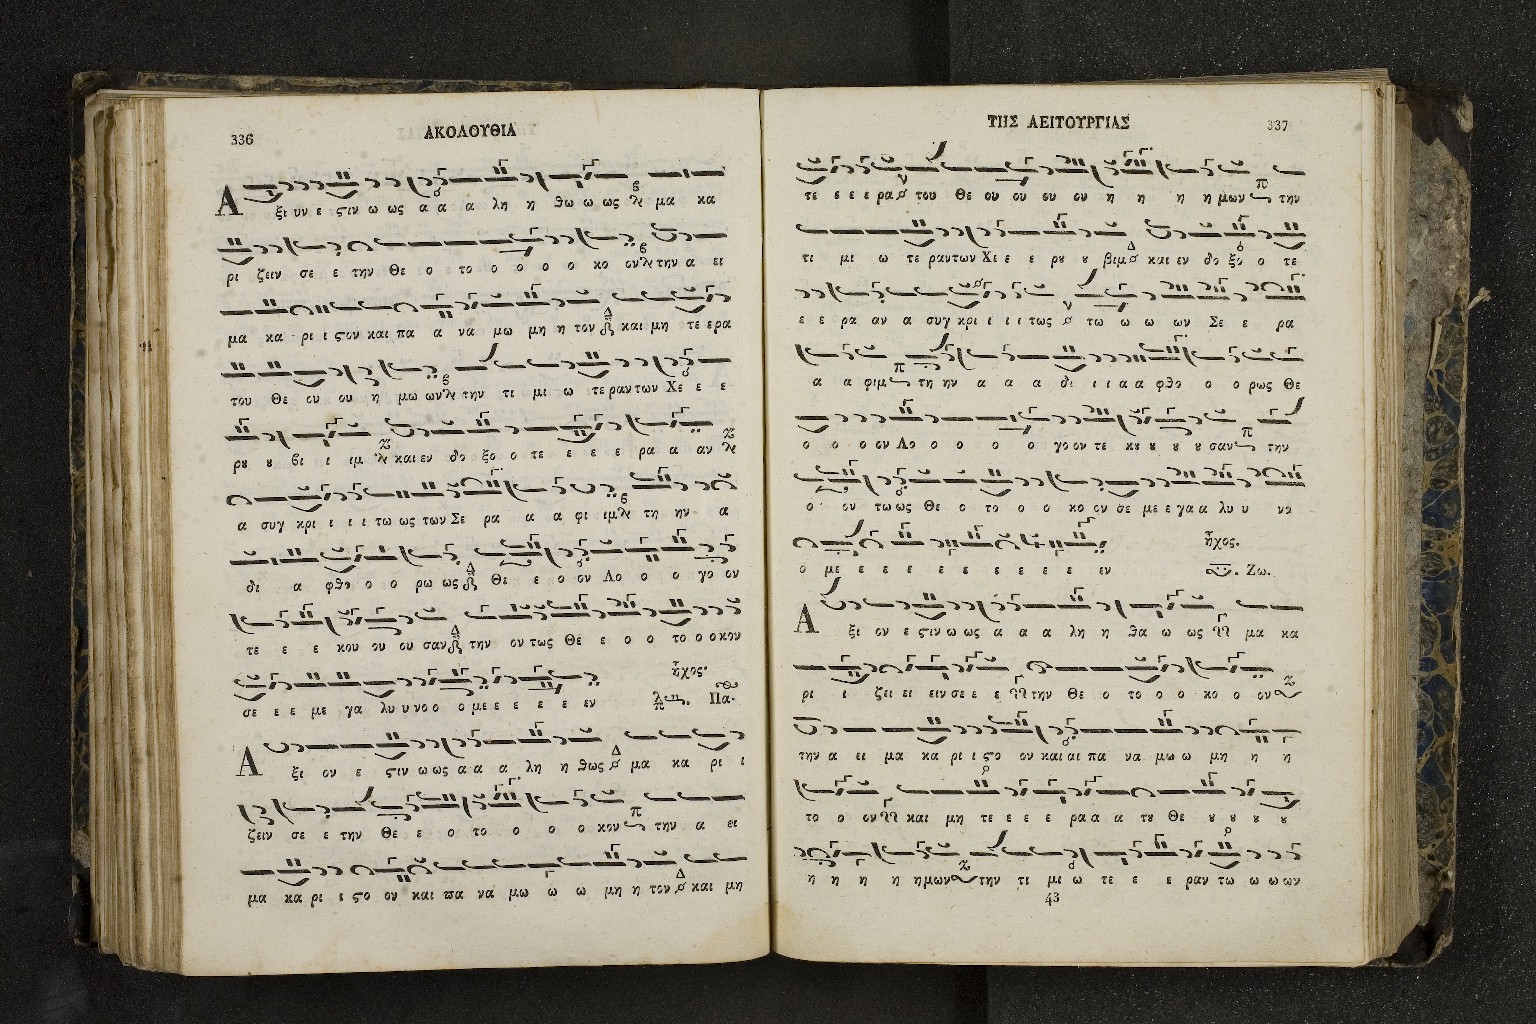 336
ΑΚΟΛΟΥΘΙΑ
Α ξι υν ε ϛιν ω ως α α α λη η θω ω ως μα κα
ρι ζειν σε ε την Θε ο το ο ο ο ο κο ον την α ει
μα κα ρι ι ϛον και πα α να μω μη η τον και μη τε ερα
του Θε ου ου η μω ων την τι μι ω τε ραν των Χε ε ε
ρȣ ȣ βι ι ιμ και εν δο ξο ο τε ε ε ε ρα α αν
α συγ κρι ι ι ι τω ως των Σε ρα α α φι ιμ τη ην α
δι α φθο ο ο ρω ως Θε ε ο ον Λο ο ο γο ον
τε ε ε κου ου ου σαν την ον τως Θε ε ο ο το ο ο κον
σε ε ε με γα λυ υ νο ο ο με ε ε ε ε ε εν
ἦχος.
Πα.
Α ξι ον ε ϛιν ω ως α α α λη η θως μα κα ρι ι
ζειν σε ε την Θε ε ο το ο ο ο κον την α ει
μα κα ρι ι ϛο ον και πα να μω ω ω μη η τον και μη
ΤΗΣ ΛΕΙΤΟΥΡΓΙΑΣ
337
τε ε ε ε ρα του Θε ου ου ου ου η η η η μων την
τι μι ω τε ραν των Χε ε ε ρȣ ȣ βιμ και εν δο ξο ο τε
ε ε ρα αν α συγ κρι ι ι ι τως τω ω ω ων Σε ε ρα
α α φιμ τη ην α α α δι ι ι α α φθο ο ο ρως Θε
ο ο ο ον Λο ο ο ο ο γο ον τε κȣ ȣ ȣ ȣ σαν την
ο ον τω ως Θε ο το ο ο κο ον σε με ε γα α λυ υ νο
ο με ε ε ε ε ε ε ε ε ε εν
ἦχος.
Ζω.
Α ξι ον ε ϛιν ω ως α α α λη η θα ω ως μα κα
ρι ι ζει ει ειν σε ε ε την Θε ο το ο ο κο ο ον
την α ει μα κα ρι ι ϛο ον και αι πα να μω ω μη η η
το ο ον και μη τε ε ε ε ρα α α α τȣ Θε ȣ ȣ ȣ ȣ
η η η η ημων την τι μι ω τε ε ε ραν τω ω ω ων
43